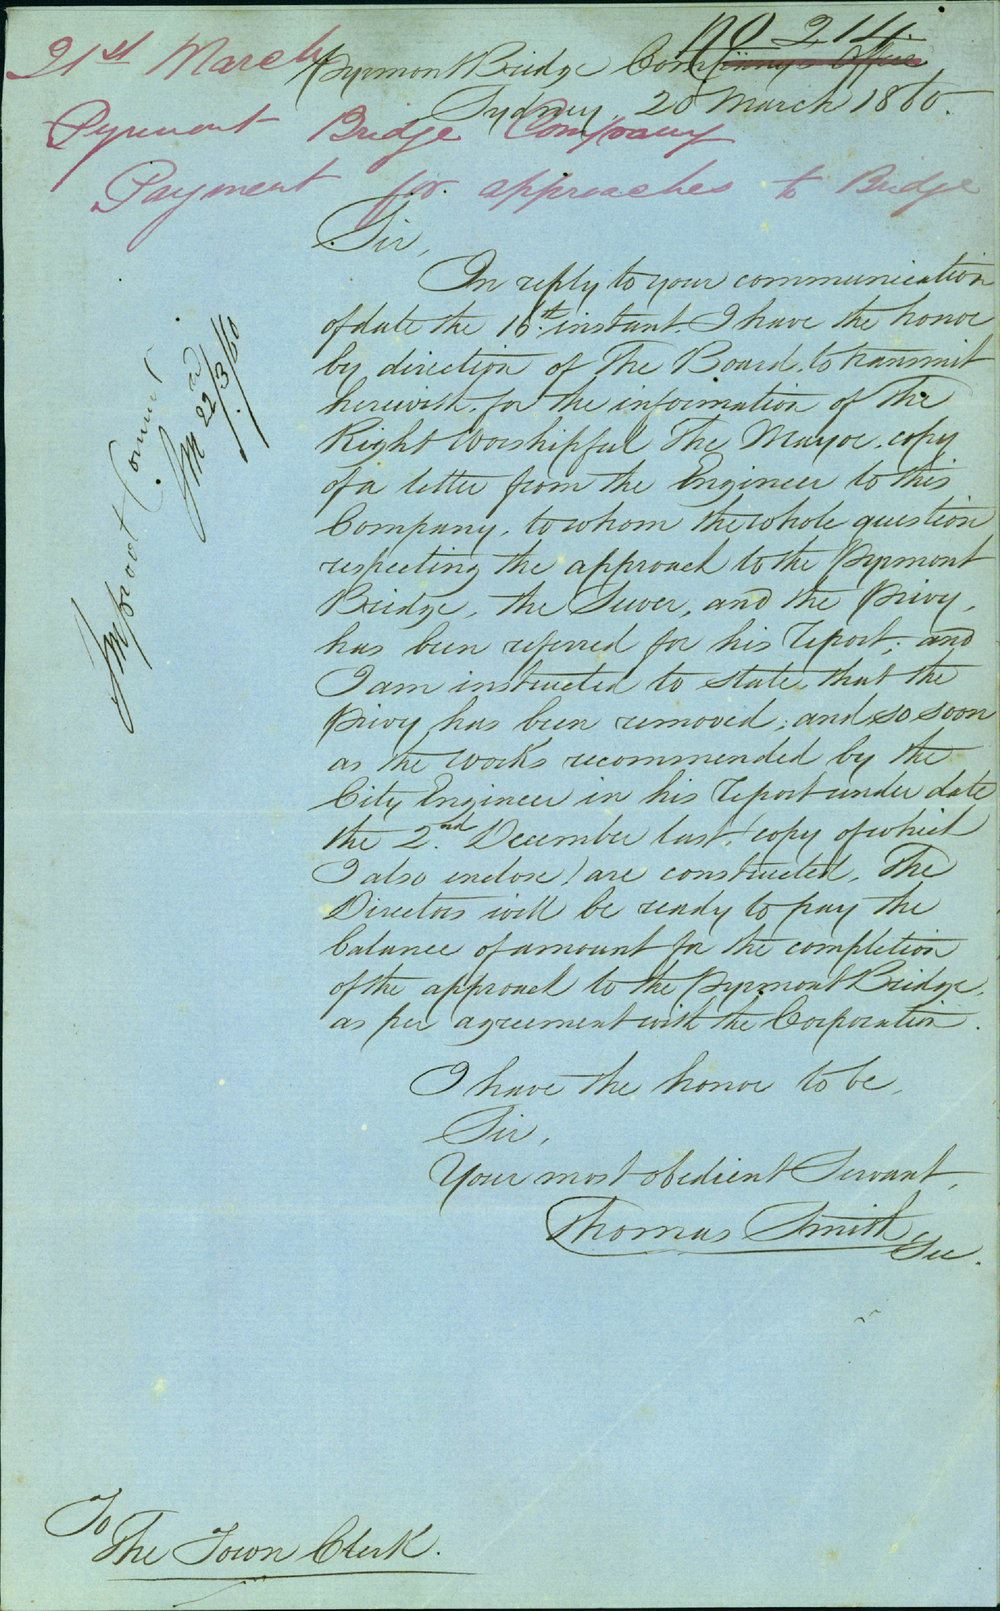 No 214
21st March
Pyrmont Bridge Company's Office
Sydney, 20 March 1860.
Pyrmont Bridge Company
Payment for approaches to Bridge
Sir,
In reply to your communication
of date the 16th instant. I have the honor
by direction of The Board, to transmit
herewith, for the information of The
Right Worshipful The Mayor, copy
of a letter from the Engineer to this
Company, to whom the whole question
respecting the approach to the Pyrmont
Bridge, the Sewer, and the Privy,
has been referred for his report; and
I am instructed to state, that the
Privy has been removed; and so soon
as the works recommended by the
City Engineer in his report under date
the 2nd December last, (copy of which
I also enclose) are constructed, The
Directors will be ready to pay the
balance of amount for the completion
of the approach to the Pyrmont Bridge,
as per agreement with the Corporation.
I have the honor to be,
Sir,
Your most obedient Servant,
Thomas Smith
Sec.
22/3/60
To
The Town Clerk.